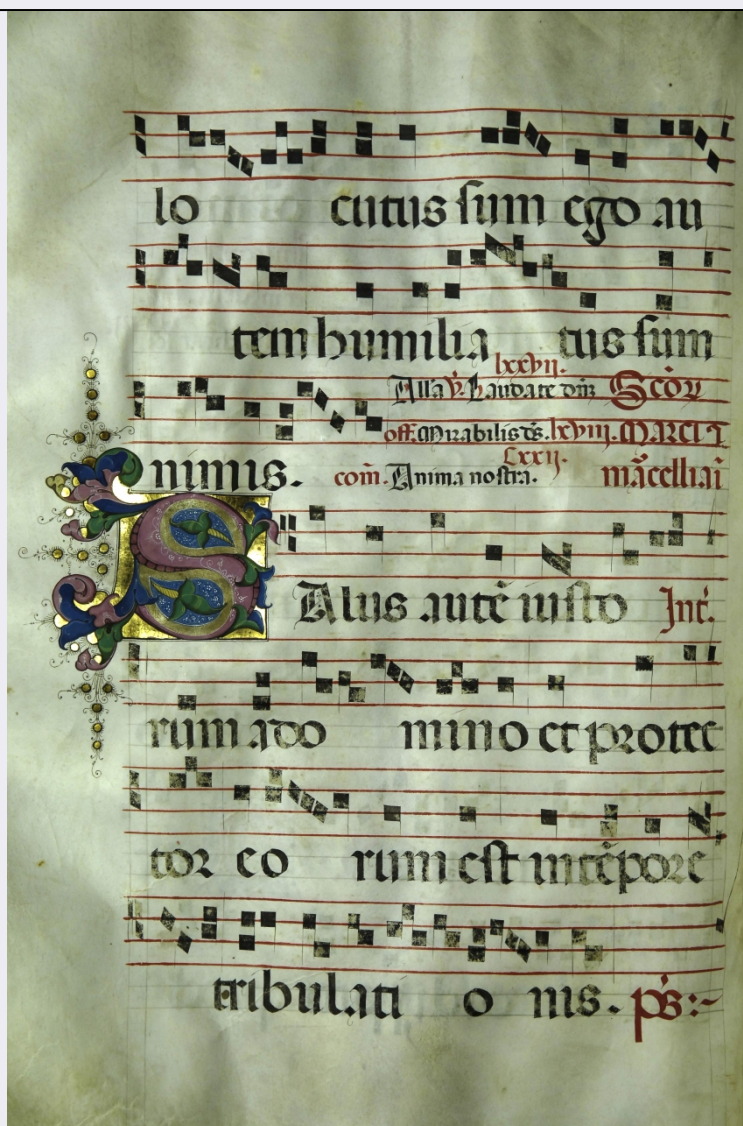 lo cutus sum ego au
tem humilia tus sum
lxxvii.
Alla V. Laudate dm̄ Scōꝝ
off. Mirabilis d̄s. lxviii. MARCI T
Lxxii.
nimis. com̄. Anima nostra. mācelliai
SAlus autē iusto Int̄.
rum ado mino et protec
tor eo rum est in tēpore
tribulati o nis. ps̄:~